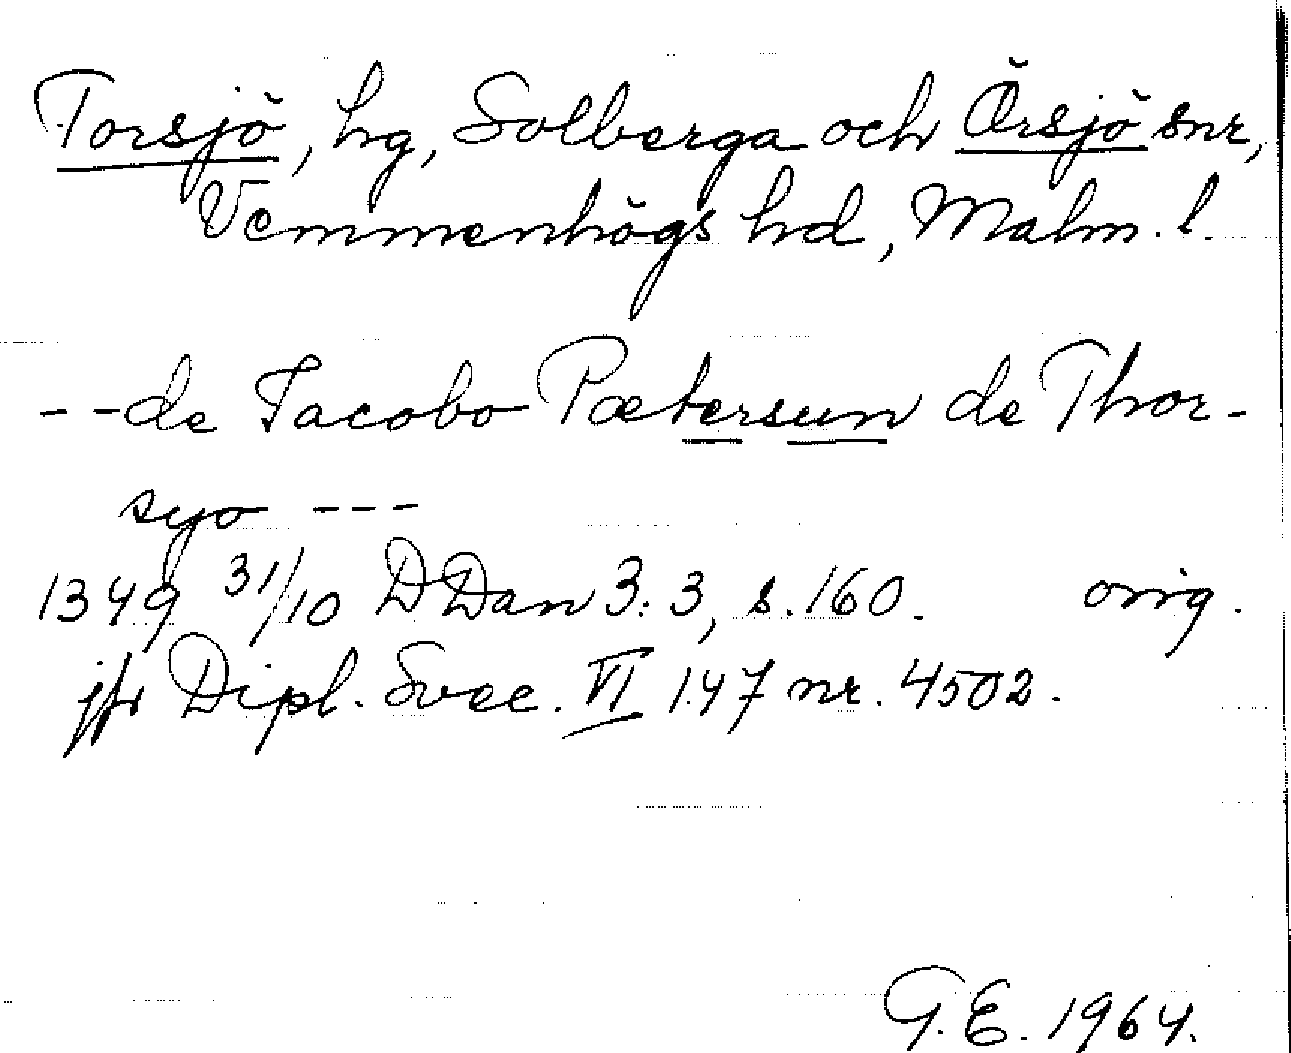 Torsjö, hg, Solberga och Örsjö snr,
Vemmenhögs hd, Malm. l.
--de Jacobo Pætersun de Thor-
syo ---
1349 31/10 DDan 3:3, s. 160. orig.
jfr Dipl. Svec. VI 147 nr. 4502.
G.E. 1964.